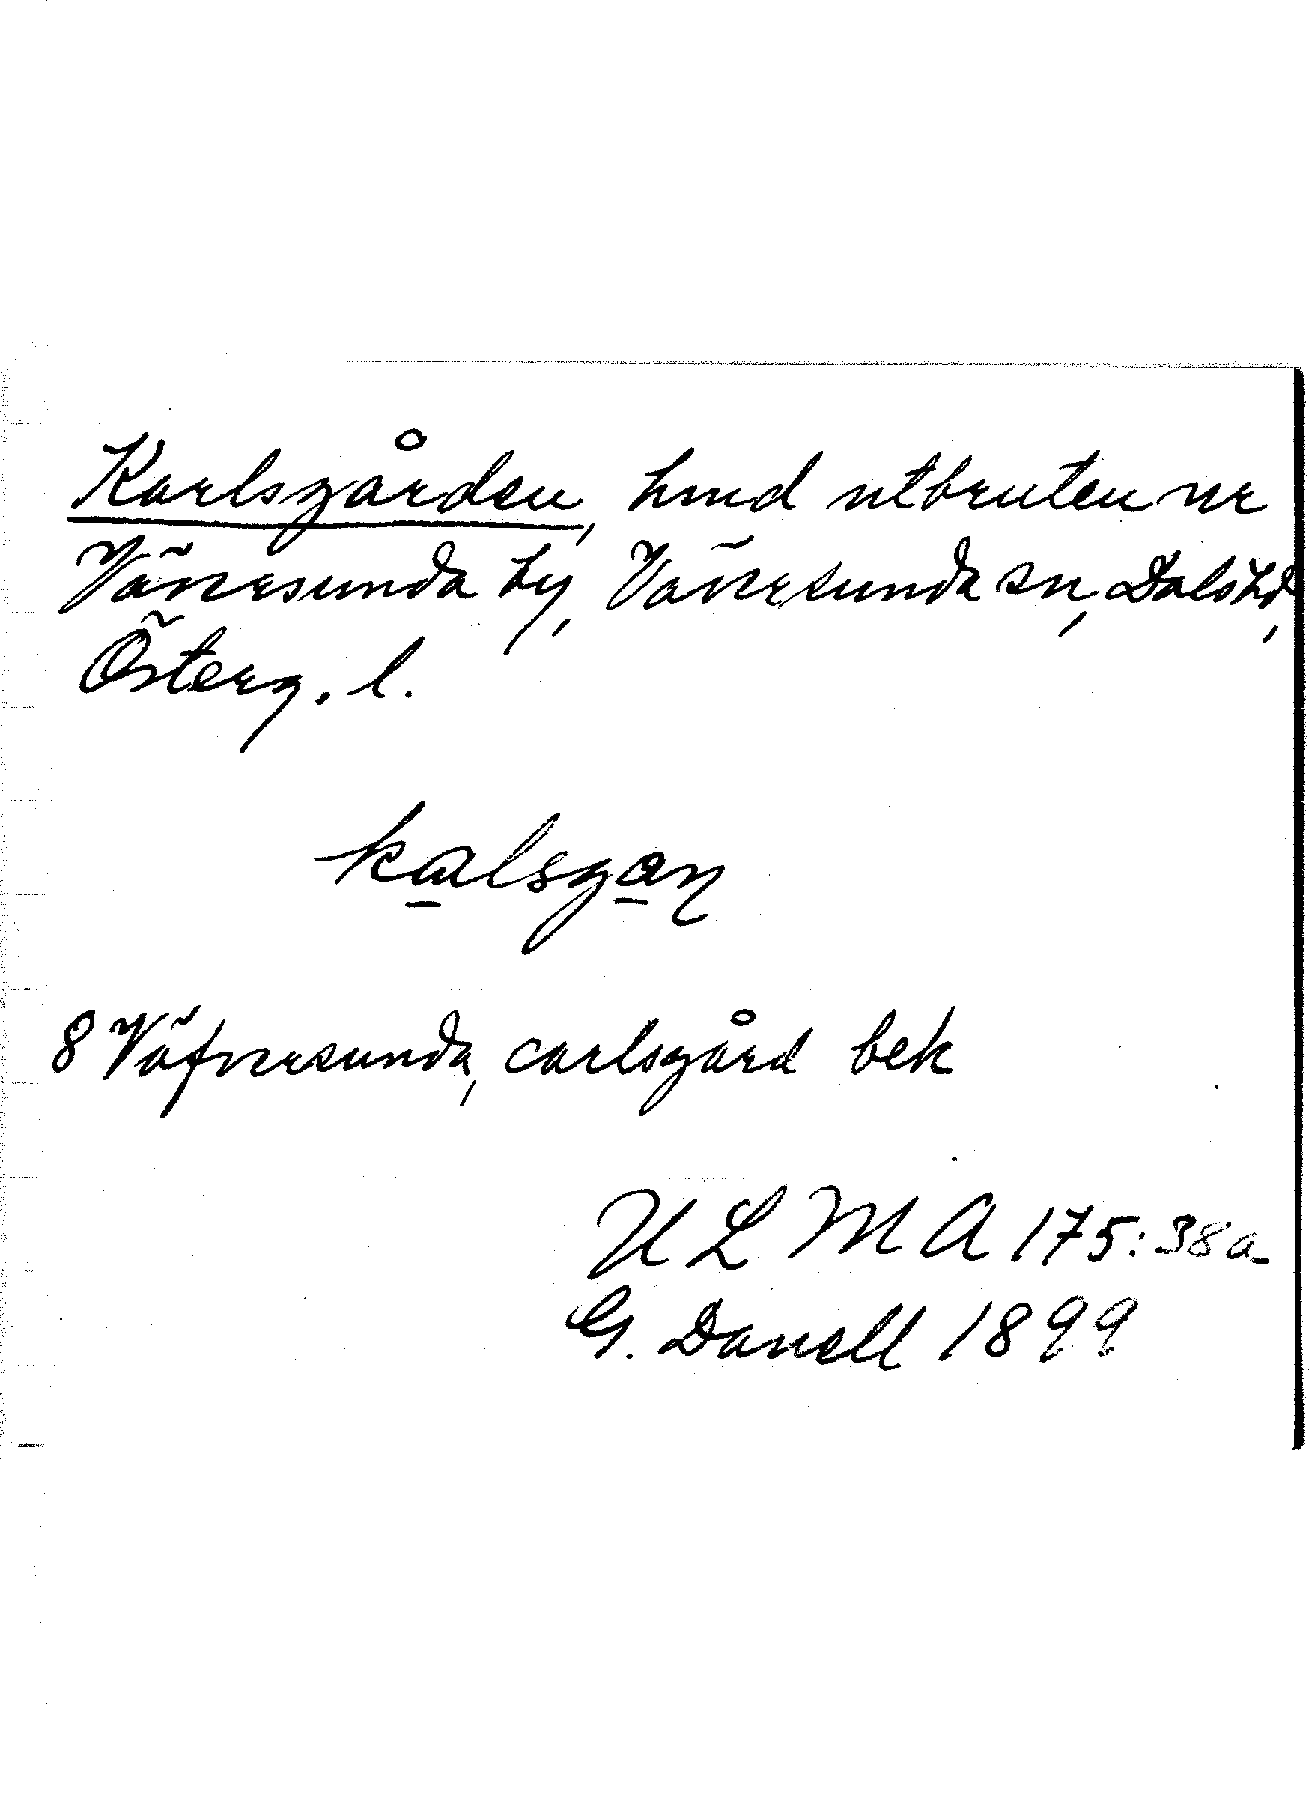 Karlsgården, hmd utbruten ur
Vänersunda by, Vänersunda sn, Dals hd,
Österg. l.
8 Väfnersunda, carlsgård bek
ULMA 175:38a
G. Danell 1899